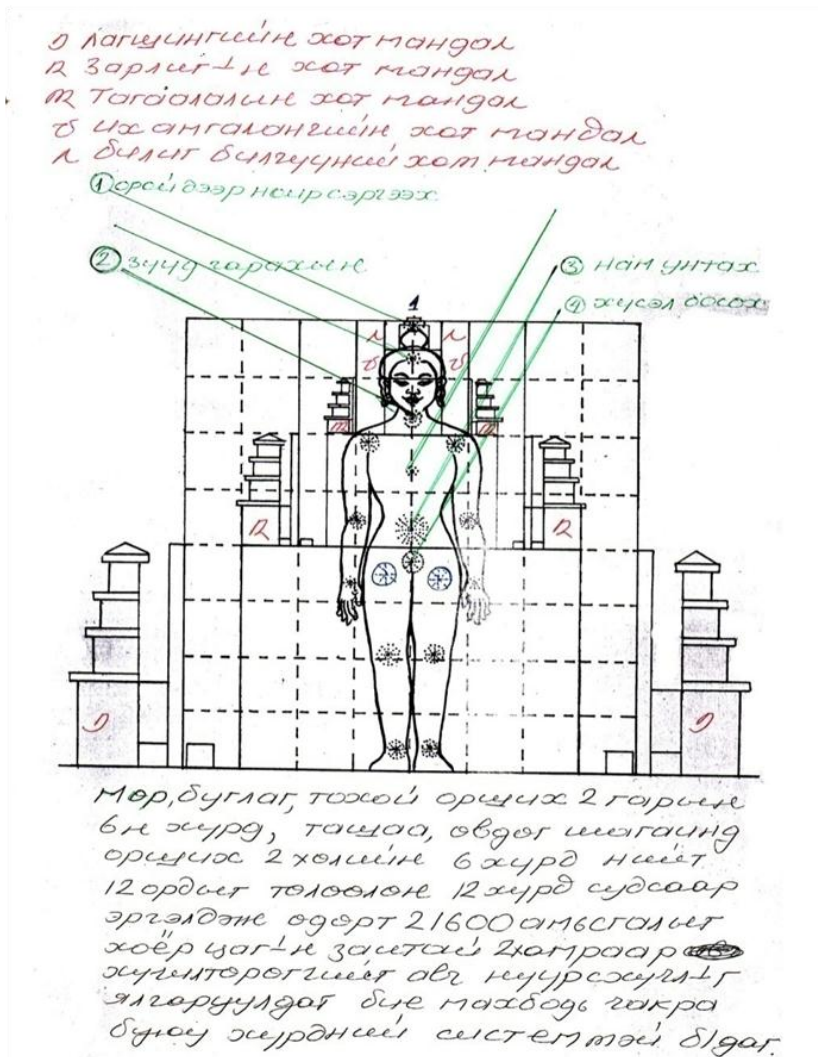 ༡ Лагшингийн хот мандал
༢ Зарлиг-н хот мандал
༣ Тагаалалын хот мандал
༤ их амгалангийн хот мандал
༥ билиг билгүүний хот мандал
① орой дээр нойр сэргээх
② зүүд гарахын
③ нам унтах
④ хүсэл босох
1
༥ ༥
༤ ༤
༣ ༣
༢ ༢
༡ ༡
Мөр, буглаг, тохой орших 2 гарын
6н хүрд, ташаа, өвдөг шагаинд
орших 2 хөлийн 6 хүрд нийт
12 ордыг төлөөлөн 12 хүрд судсаар
эргэлдэж өдөрт 21600 амьсгалыг
хоёр цаг-н заитай 2 хамраар
хүчилтөрөгчийг авч нүүрсхүчл-г
ялгаруулдаг бие махбодь чакра
буюу хүрдний системтэй б/даг.